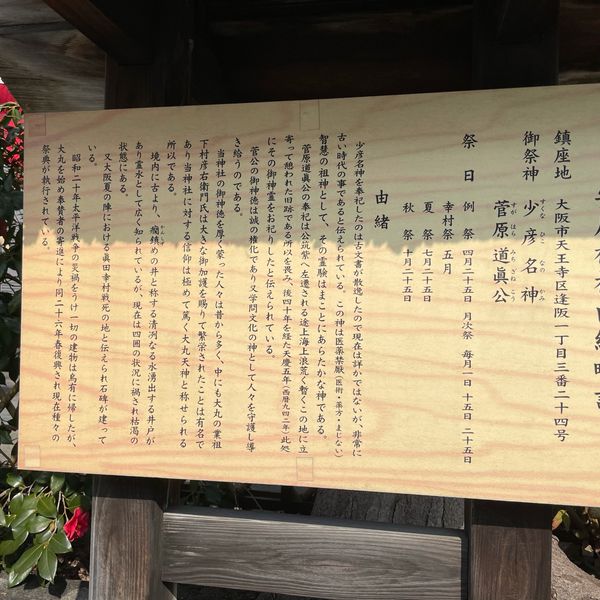 鎮座地　大阪市天王寺区逢阪一丁目三番二十四号
御祭神　少彦名神
すくな ひこ なの かみ
菅原道眞公
すが はら みち ざね こう
祭　日　例　祭　四月二十五日　月次祭　毎月一日　十五日　二十五日
幸村祭　五月
夏　祭　七月二十五日
秋　祭　十月二十五日
由緒
少彦名神を奉祀したのは古文書が散逸したので現在は詳かではないが、非常に
古い時代の事であると伝えられている。この神は医薬禁厭（医術・薬方・まじない）
智慧の祖神として、その霊験はまことにあらたかな神である。
菅原道眞公の奉祀は公筑紫へ左遷される途上海上浪荒く暫くこの地に立
寄って憩われた旧跡である所以を畏み、後四十年を経た天慶五年（西暦九四二年）此処
にその御神霊をお祀りしたと伝えられている。
菅公の御神徳は誠の権化であり又学問文化の神として人々を守護し導
き給うのである。
当神社の御神徳を厚く蒙った人々は昔から多く、中にも大丸の業祖
下村彦右衛門氏は大きな御加護を賜りて繁栄されたことは有名で
あり当神社に対する信仰は極めて篤く大丸天神と称せられる
所以である。
境内に古より、癇鎮めの井と称する清冽なる水湧出する井戸が
かんしず
あり霊水として広く知られているが、現在は四囲の状況に禍され枯渇の
状態にある。
又大阪夏の陣における眞田幸村戦死の地と伝えられ石碑が建って
いる。
昭和二十年太平洋戦争の災禍をうけ一切の建物は烏有に帰したが、
大丸を始め奉賛者の寄進により同二十六年春復興され現在種々の
祭典が執行されている。